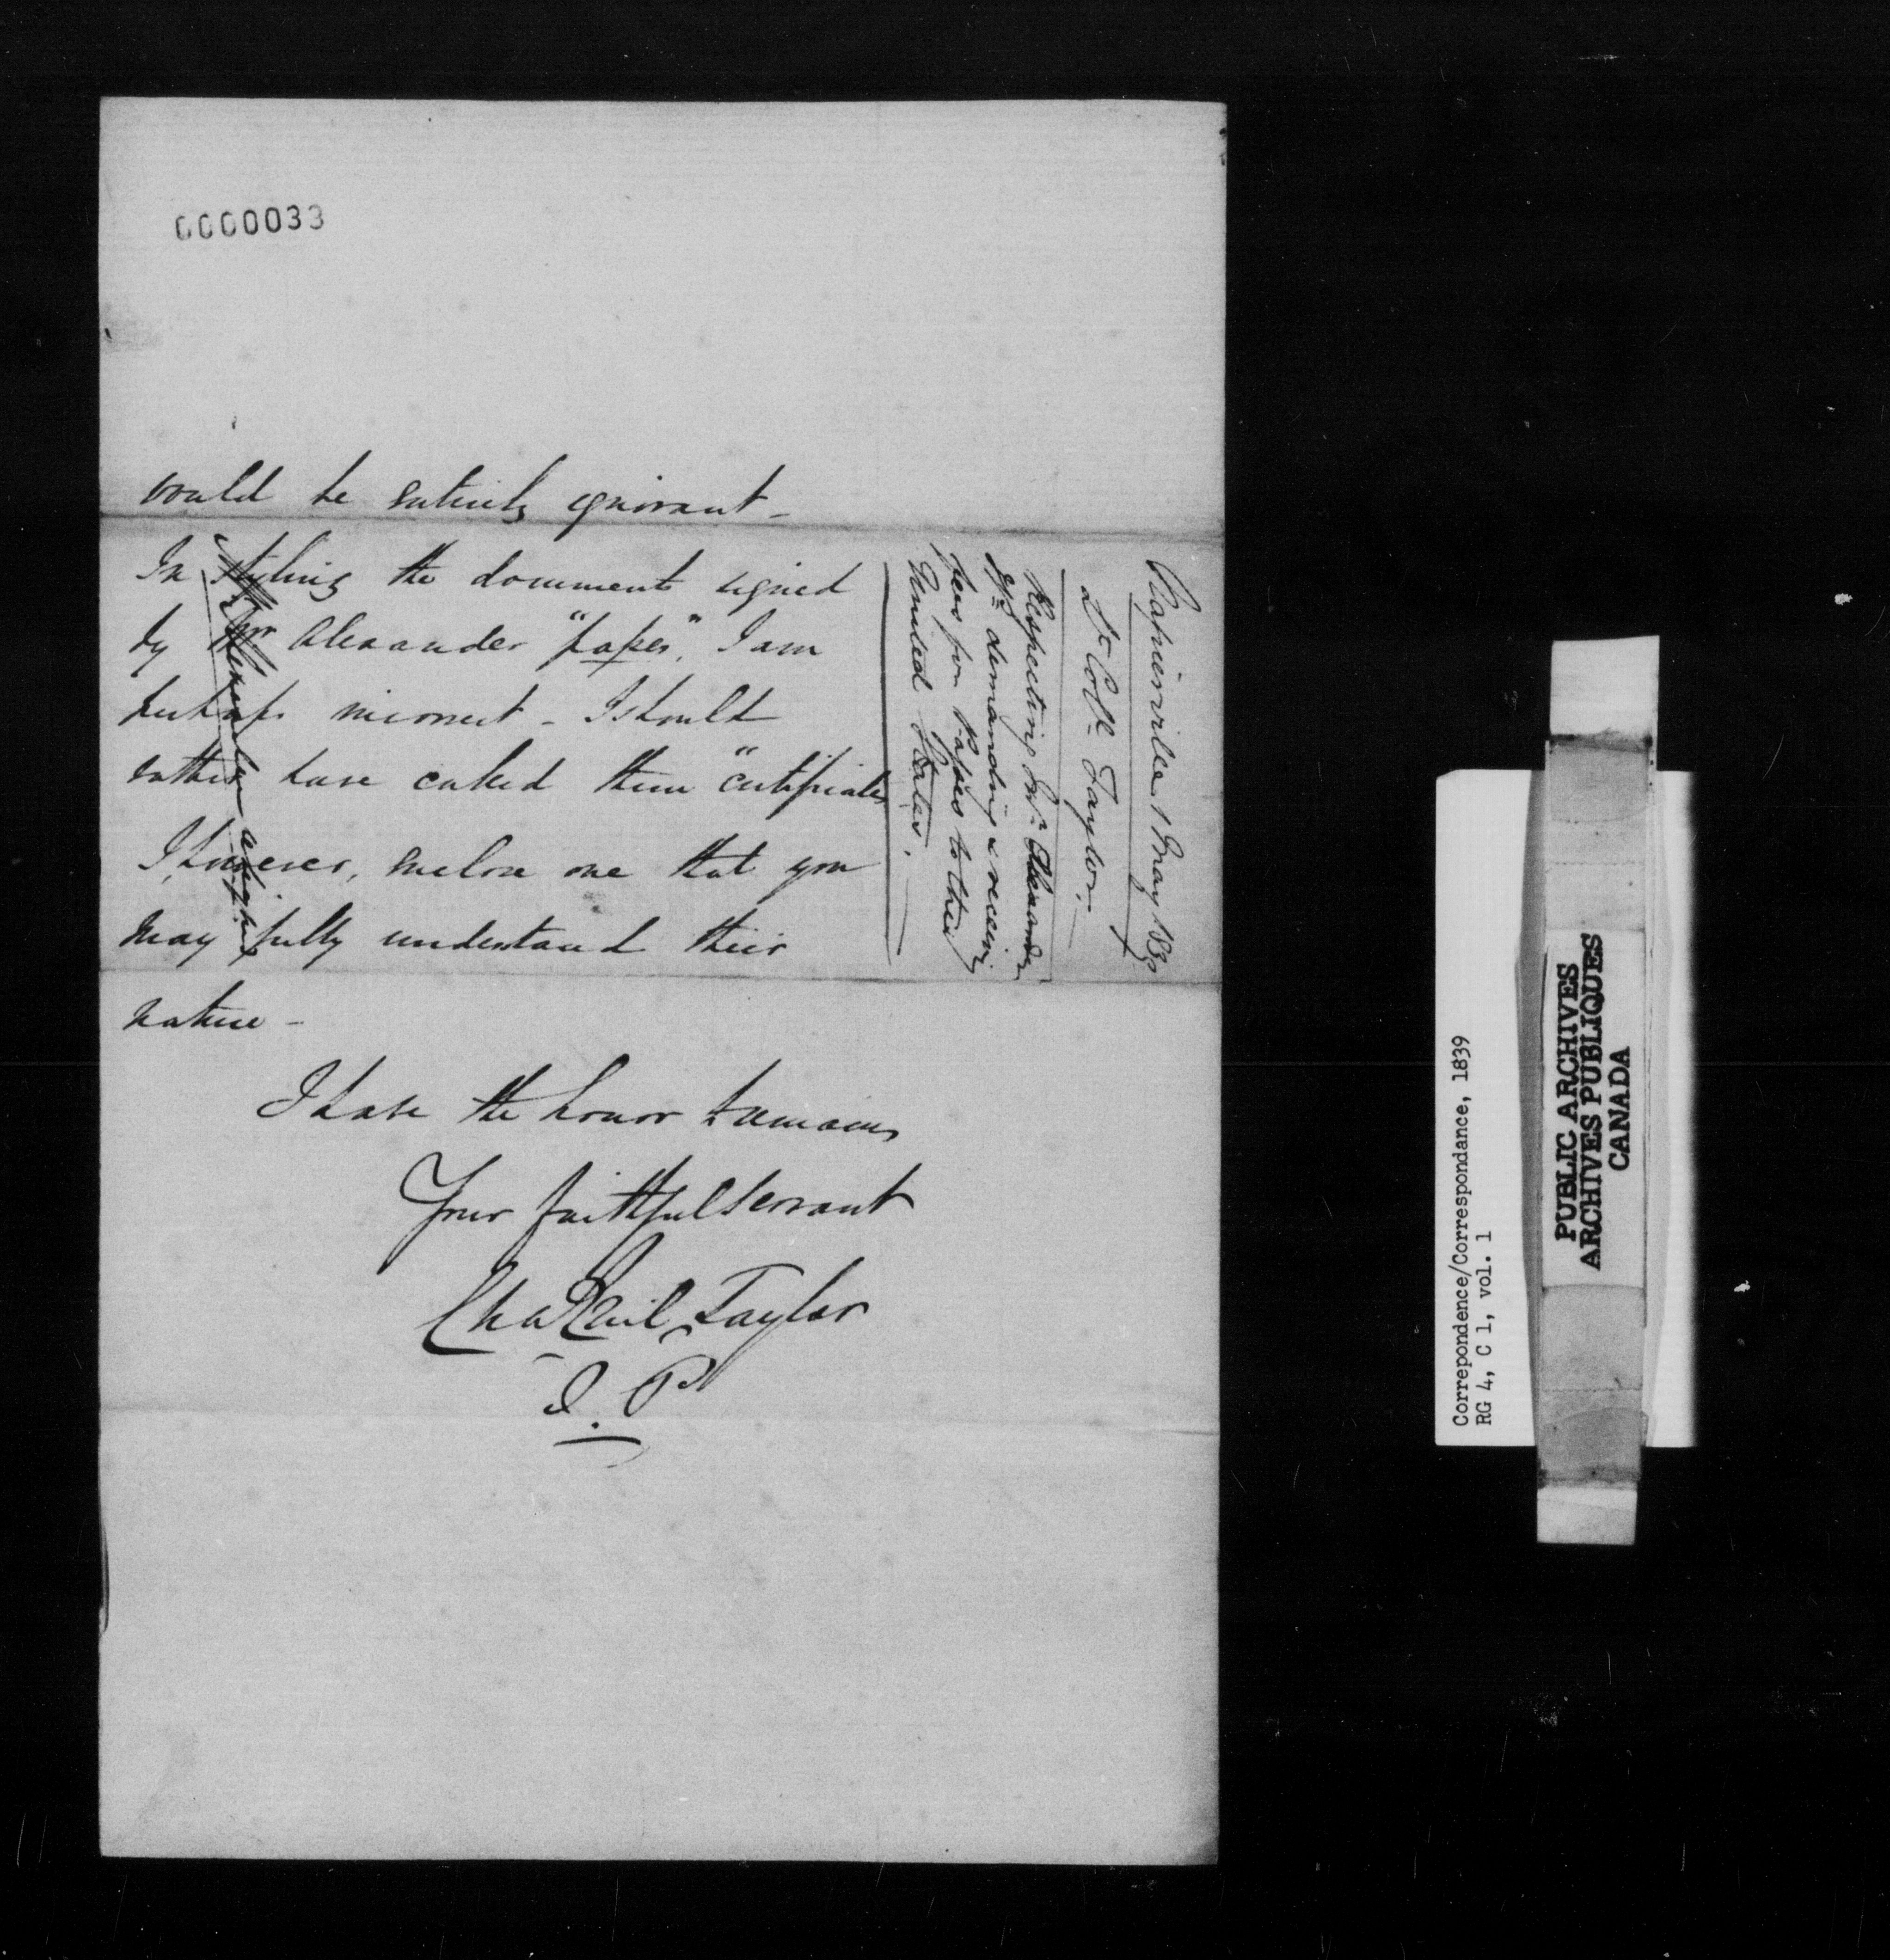 0000033
would be entirely ignorant -
In styling the documents signed
by Mr Alexander "passes", I am
perhaps incorrect - I should
rather have called them "certificates
I, however, enclose one that you
may fully understand their
nature -
I have the honor to remain,
Your faithful servant
Taylor
J. P
Napierville 1 May 1839
Lt Coll. Taylor.
Respecting Mr. Alexander
J.P. demanding & receiving
fees for Passes to the
United States.
Correpondence/Correspondance, 1839
RG 4, C 1, vol. 1
PUBLIC ARCHIVES
ARCHIVES PUBLIQUES
CANADA